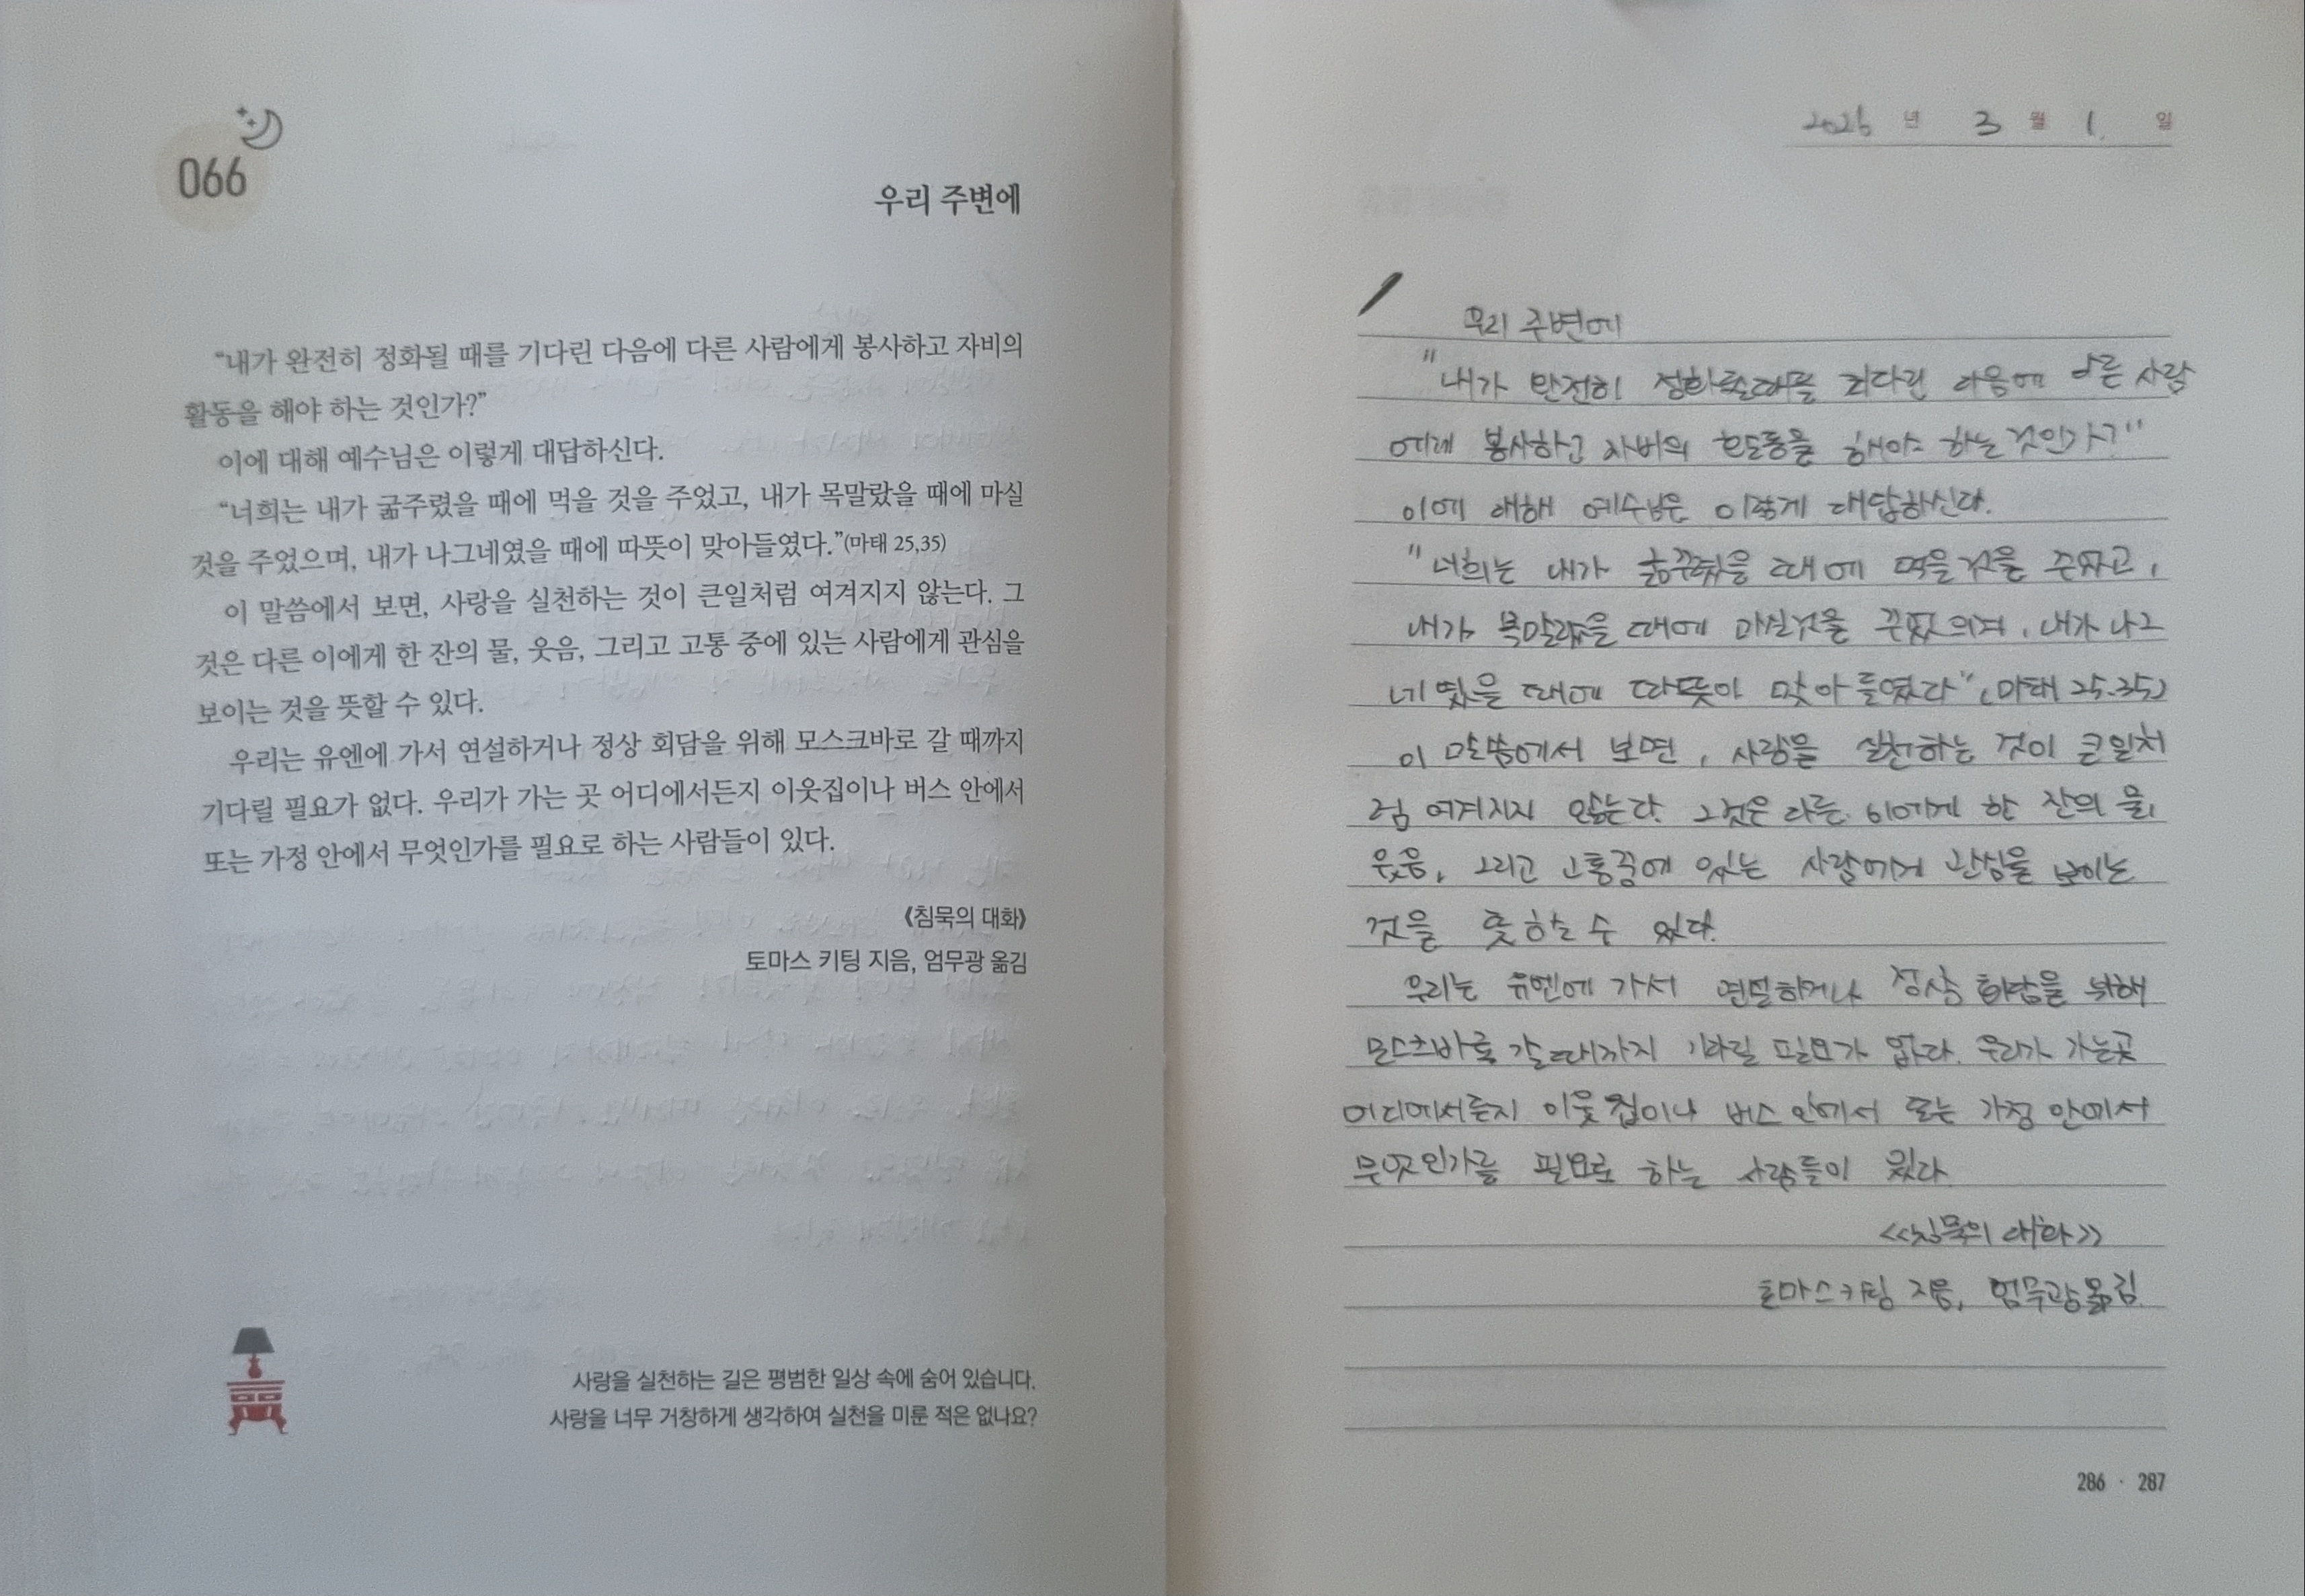 066
우리 주변에
“내가 완전히 정화될 때를 기다린 다음에 다른 사람에게 봉사하고 자비의
활동을 해야 하는 것인가?”
이에 대해 예수님은 이렇게 대답하신다.
“너희는 내가 굶주렸을 때에 먹을 것을 주었고, 내가 목말랐을 때에 마실
것을 주었으며, 내가 나그네였을 때에 따뜻이 맞아들였다.”(마태 25,35)
이 말씀에서 보면, 사랑을 실천하는 것이 큰일처럼 여겨지지 않는다. 그
것은 다른 이에게 한 잔의 물, 웃음, 그리고 고통 중에 있는 사람에게 관심을
보이는 것을 뜻할 수 있다.
우리는 유엔에 가서 연설하거나 정상 회담을 위해 모스크바로 갈 때까지
기다릴 필요가 없다. 우리가 가는 곳 어디에서든지 이웃집이나 버스 안에서
또는 가정 안에서 무엇인가를 필요로 하는 사람들이 있다.
《침묵의 대화》
토마스 키팅 지음, 엄무광 옮김
사랑을 실천하는 길은 평범한 일상 속에 숨어 있습니다.
사랑을 너무 거창하게 생각하여 실천을 미룬 적은 없나요?
2026 년 3 월 1. 일
우리 주변에
"내가 완전히 정화될때를 기다린 다음에 다른 사람
에게 봉사하고 자비의 활동을 해야 하는 것인가?"
이에 대해 예수님은 이렇게 대답하신다.
"너희는 내가 때에 먹을것을 주었고,
내가 목말랐을 때에 마실것을 내가 나그
네였을 때에 따뜻이 맞아 들였다" (마태 25.35)
이 말씀에서 보면, 사랑을 실천하는 것이 큰일처
럼 여겨지지 않는다. 그것은 다른 이에게 한 잔의 물,
웃음, 그리고 고통중에 있는 사람에게 관심을 보이는
것을 뜻할 수 있다.
우리는 유엔에 가서 연설하거나 정상 회담을 위해
갈때까지 기다릴 필요가 없다. 우리가 가는곳
어디에서든지 이웃집이나 버스 안에서 또는 가정 안에서
무엇인가를 필요로 하는 사람들이 있다.
<<침묵의 대화>>
토마스키팅 지음, 엄무광옮김.
286 · 287